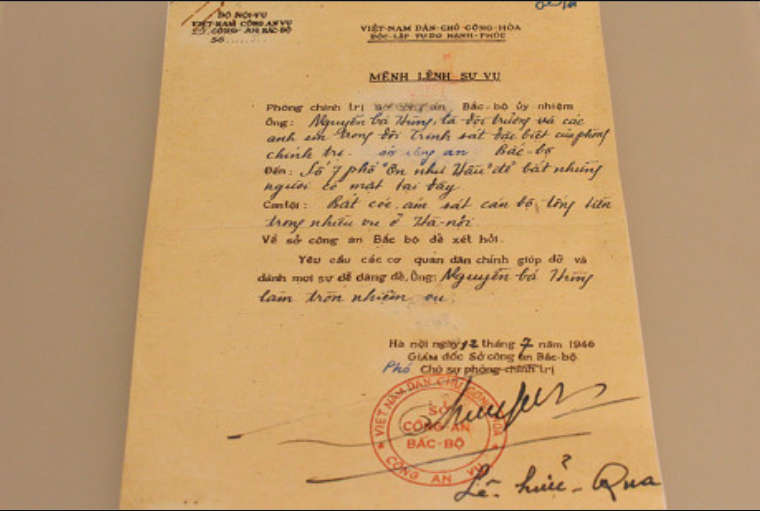 BỘ NỘI-VỤ
VIỆT-NAM CÔNG AN VỤ
SỞ CÔNG-AN BẮC-BỘ
SỐ ........
VIỆT-NAM DÂN-CHỦ CỘNG-HÒA
ĐỘC-LẬP TỰ-DO HẠNH-PHÚC
MỆNH LỆNH SỰ VỤ
Phòng chính trị sở công an Bắc-bộ ủy nhiệm
Ông: Nguyễn bá Hùng, là đội trưởng và các
anh em trong đội Trinh sát đặc biệt của phòng
chính trị. sở công an Bắc-bộ
Đến: Số 7 phố "Ôn như Hầu" để bắt những
người có mặt tại đây
Can tội: Bắt cóc, ám sát cán bộ, tống tiền
trong nhiều vụ ở Hà-nội.
Về sở công an Bắc bộ để xét hỏi.
Yêu cầu các cơ quan dân chính giúp đỡ và
dành mọi sự dễ dàng để Ông: Nguyễn bá Hùng
làm tròn nhiệm vụ.
Hà nội ngày 12 tháng 7 năm 1946
GIÁM đốc Sở công an Bắc-bộ
Phó Chủ sự phòng chính trị
VIỆT NAM DÂN CHỦ CỘNG HÒA
SỞ
CÔNG-AN
BẮC-BỘ
CÔNG AN VỤ
Lê-hữu-Qua